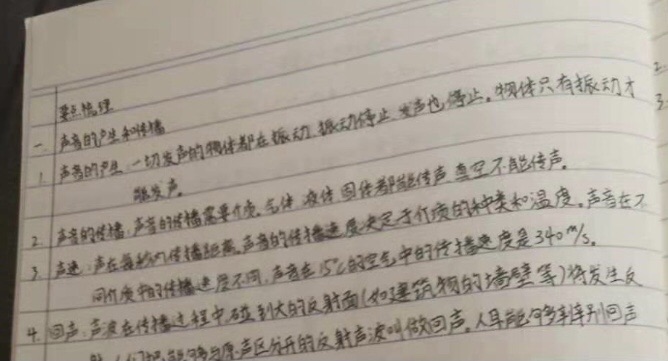 要点梳理
一、声音的产生和传播
1. 声音的产生：一切发声的物体都在振动，振动停止，发声也停止。物体只有振动才
能发声。
2. 声音的传播：声音的传播需要介质，气体、液体、固体都能传声，真空不能传声。
3. 声速：声在每秒内传播距离。声音的传播速度决定于介质的种类和温度。声音在不
同介质中的传播速度不同，声音在15℃的空气中的传播速度是340m/s。
4. 回声：声波在传播过程中，碰到大的反射面(如建筑物的墙壁等)将发生反
射，人们把能够与原声区分开的反射声波叫做回声。人耳能够辨别回声
2.
3